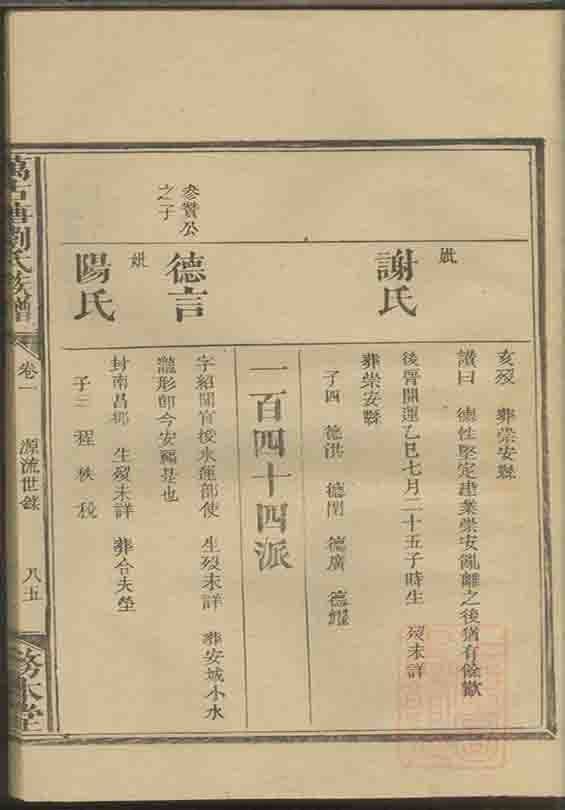 亥歿　葬崇安縣
讚曰　德性堅定建業崇安亂離之後猶有餘歡
妣
謝氏
後晉開運乙巳七月二十五子時生　歿未詳
葬崇安縣
子四　德洪　德閏　德廣　德耀
一百四十四派
參贊公
之子
德言
字紹閒官授水運部使　生歿未詳　葬安城小水
龍形即今安福是也
妣
陽氏
封南昌郡　生歿未詳　葬合夫塋
子三　程　秩　稅
萬石唐劉氏族譜
卷一
源流世錄
八五
務本堂